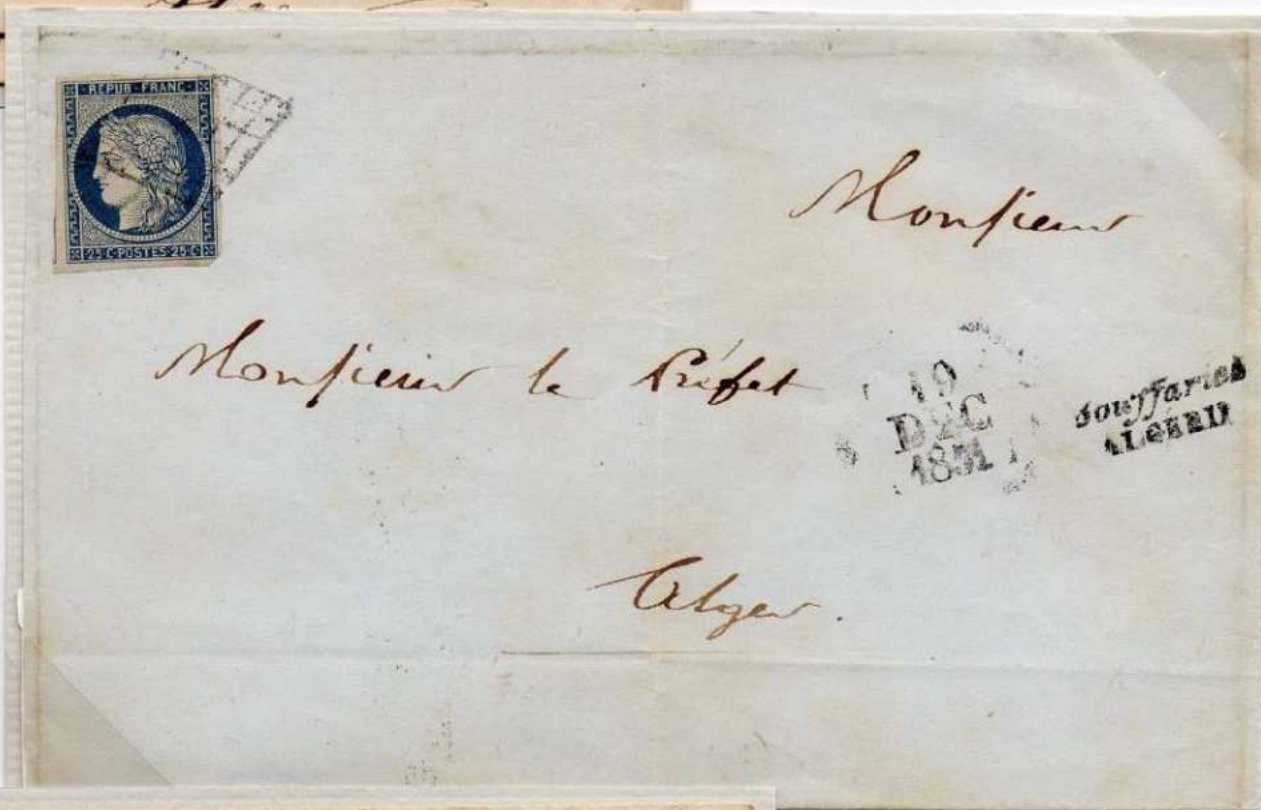 REPUB·FRANC·
25·C·POSTES·25·C
Monsieur
Monsieur le Préfet
19
DEC
1851
Bouffarick
ALGÉRIE
Alger.